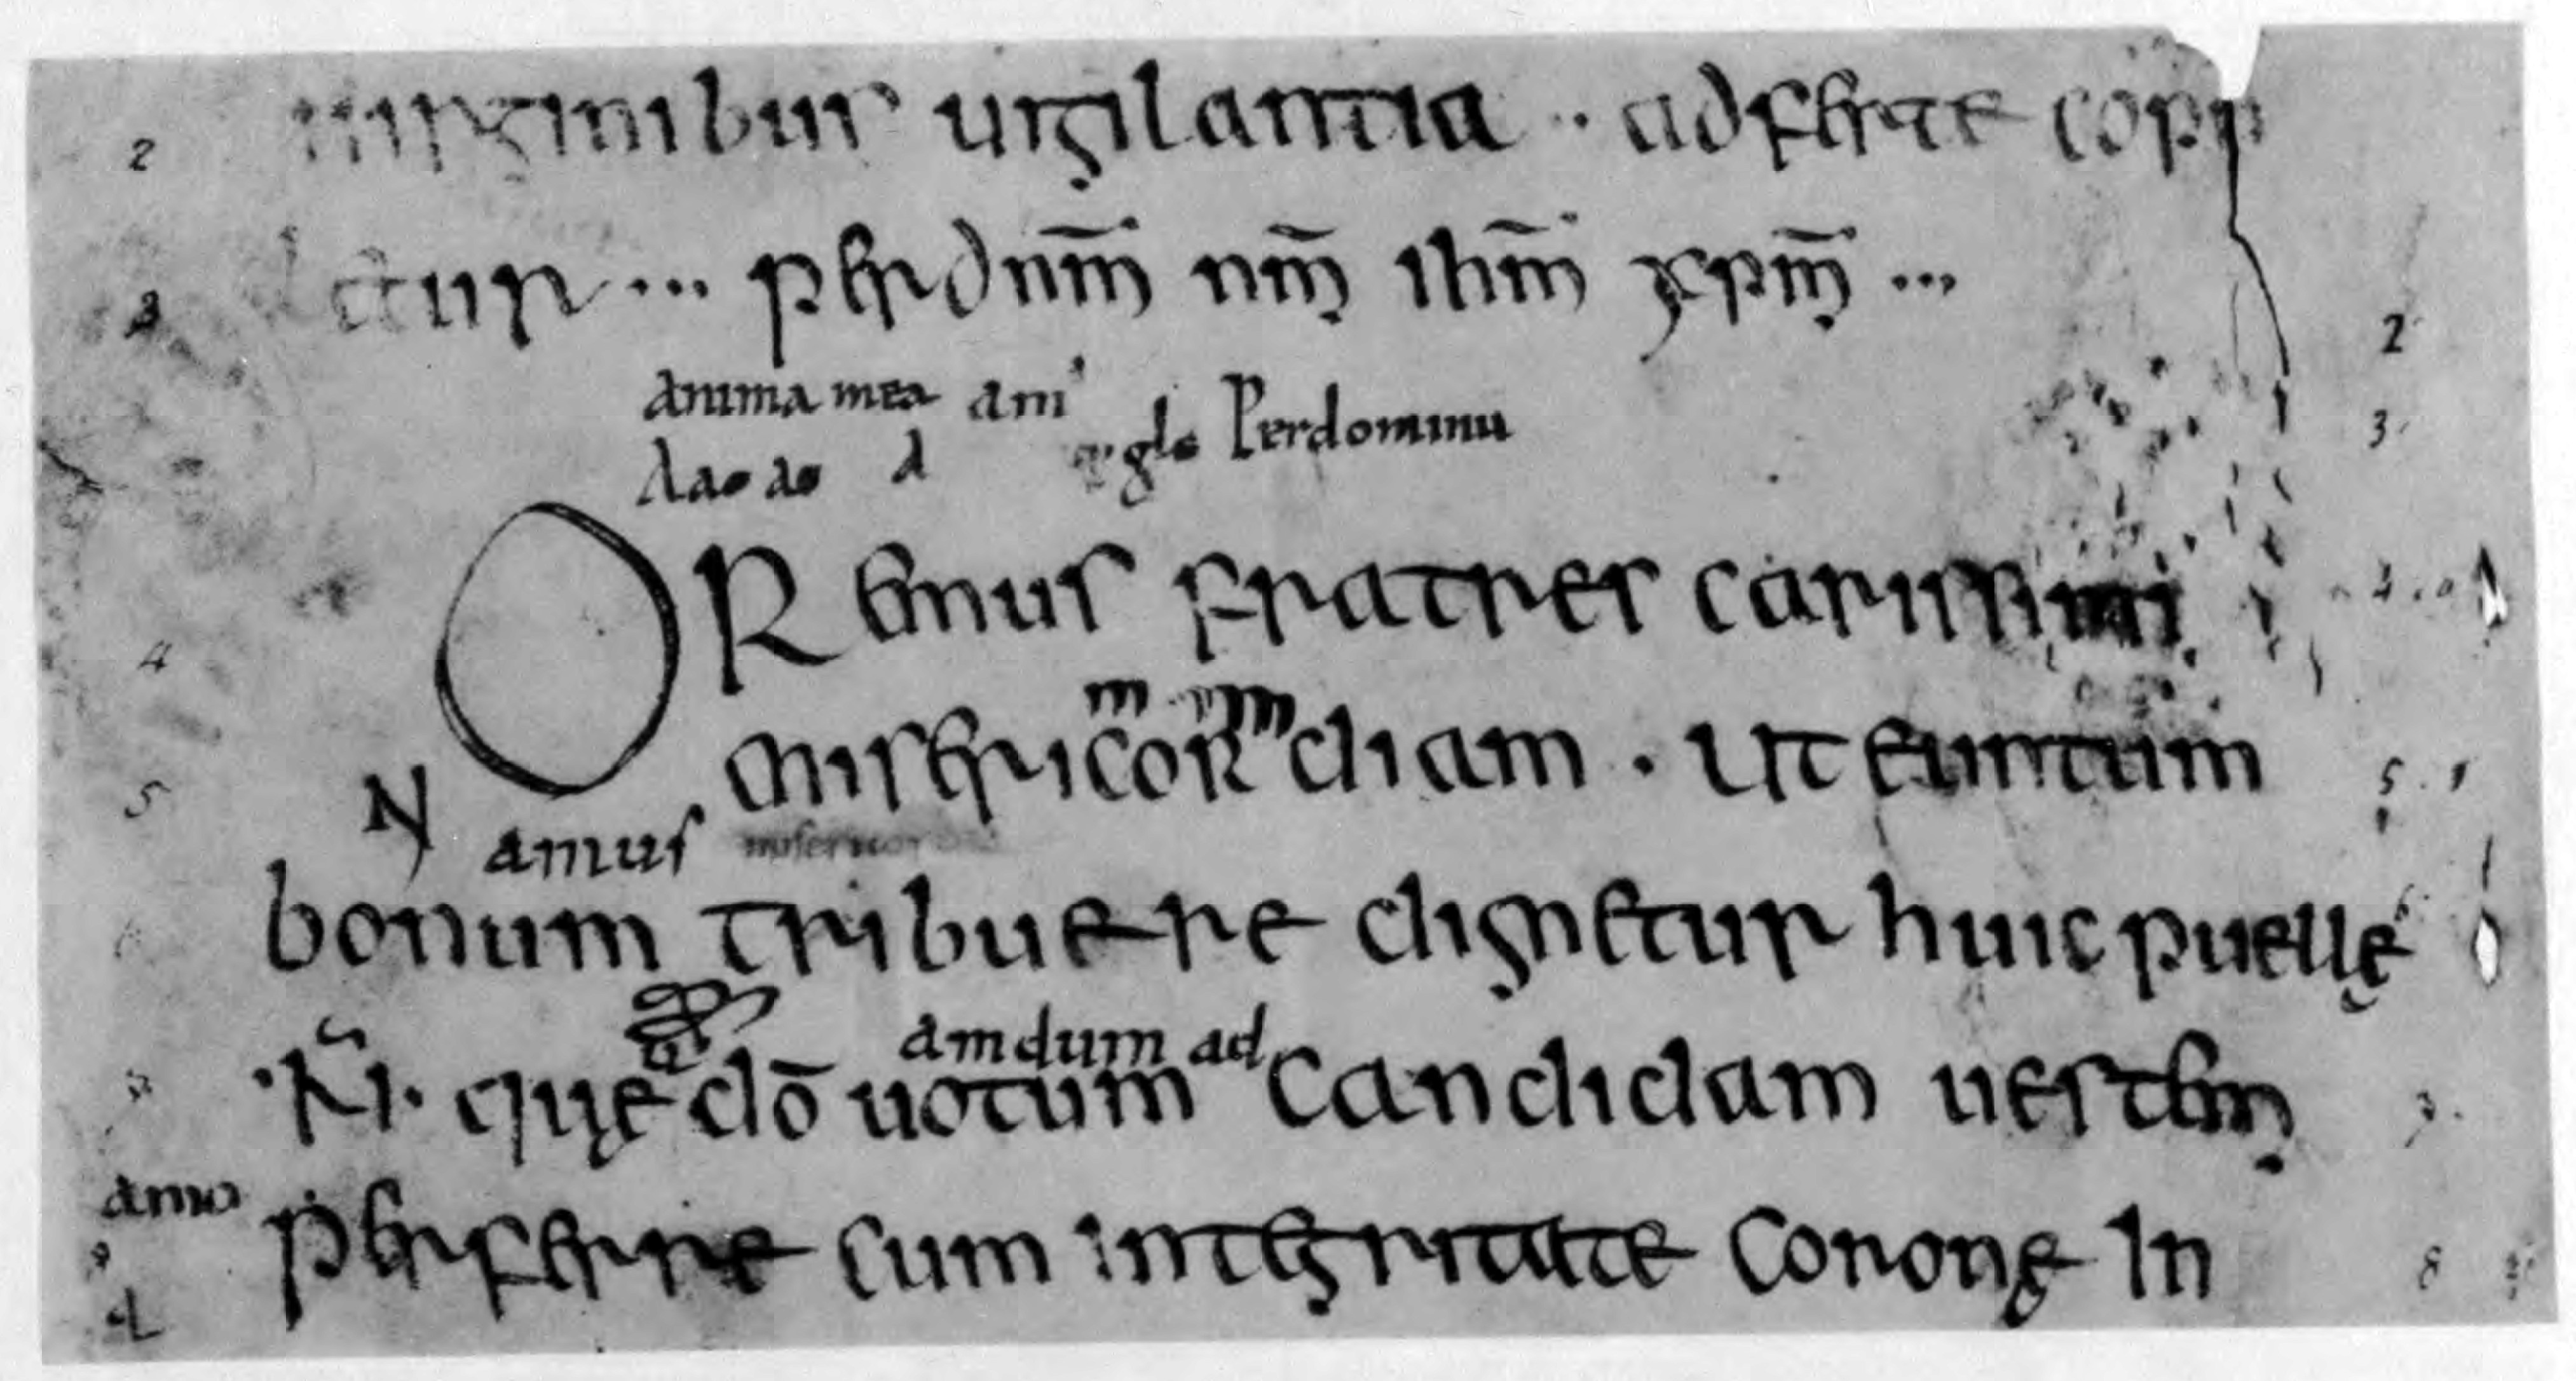 uirginibus uigilantia .. adferte copp
letur ... per dnm̄ nm̄ ihm̄ xpm̄ ...
anima mea ani
Aao ao a gls Perdominu
ORemus fratres carissimi
m m
misericordiam . ut euntum
N amus misericor
bonum tribuere dignetur huic puellę
amdum ad
·N̄i· quę dō uotum candidam uestem
amo
perferre cum integritate coronę In